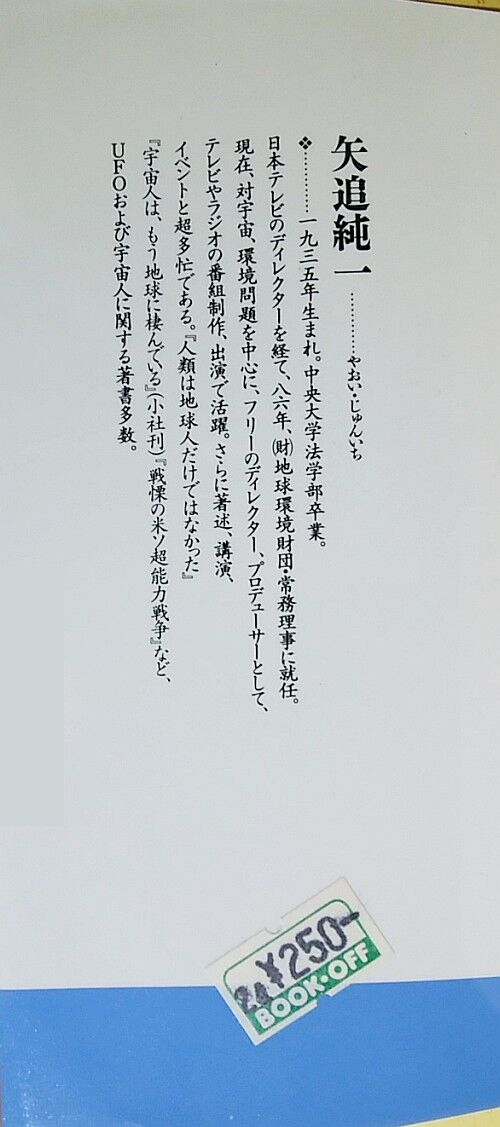 矢追純一…………やおい・じゅんいち
❖…………一九三五年生まれ。中央大学法学部卒業。
日本テレビのディレクターを経て、八六年、㈶地球環境財団・常務理事に就任。
現在、対宇宙、環境問題を中心に、フリーのディレクター、プロデューサーとして、
テレビやラジオの番組制作、出演で活躍。さらに著述、講演、
イベントと超多忙である。『人類は地球人だけではなかった』
『宇宙人は、もう地球に棲んでいる』(小社刊)『戦慄の米ソ超能力戦争』など、
UFOおよび宇宙人に関する著書多数。
24 ¥250-
BOOK・OFF